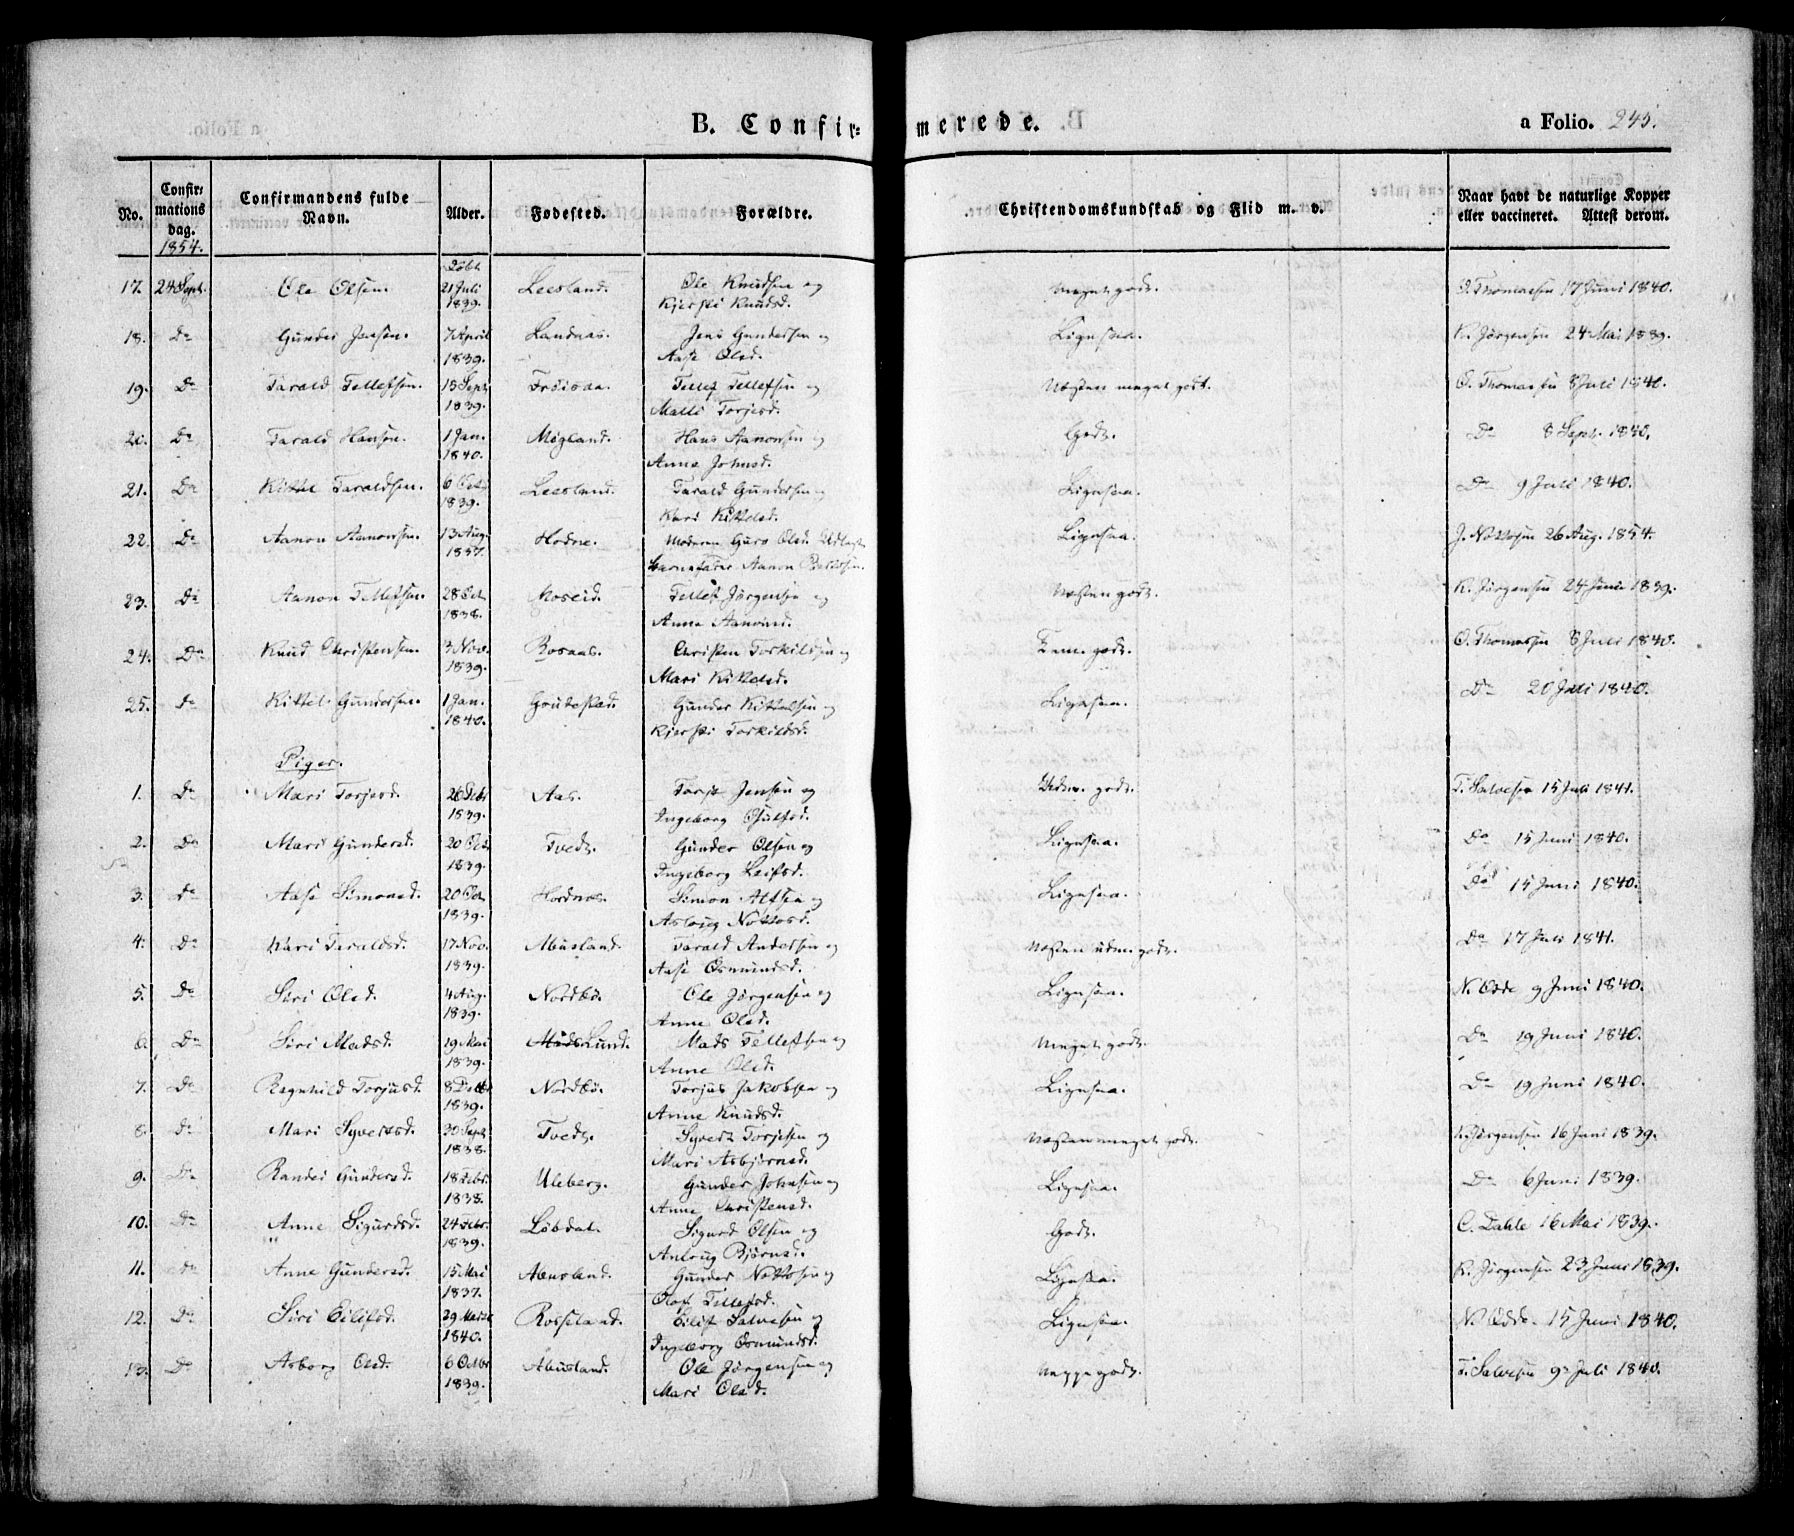 B. Confir- merede. a Folio. 245.
No. Confir-mations dag. 1854. Confirmandens fulde Navn. Alder. Fødested. Forældre. Christendomskundskab og Flid m. v. Naar havt de naturlige Kopper eller vaccineret. Attest derom.
17. 24 Sept. Ole Olsen. Døbt 21 Juli 1839. Leesland. Ole Knudsen og Kjersti Knudsd. Meget godt. O. Thomassen 17 Juni 1840.
18. Do Gunder Jensen. 7 April 1839. Landaas. Jens Gundersen og Aase Olsd. Ligesaa. K. Jørgensen 24 Mai 1839.
19. Do Tarald Tellefsen. 15 Sept. 1839. Frøisaa. Tellef Tellefsen og Malli Torjesd. Næsten meget godt. O. Thomassen 8 Juli 1840.
20. Do Tarald Hansen. 1 Jan. 1840. Møgland. Hans Aanonsen og Anne Johnsd. Godt. Do 8 Sept. 1840.
21. Do Kittel Taraldsen. 6 Oct. 1839. Leesland. Tarald Gundersen og Kari Kittelsd. Ligesaa. Do 9 Juli 1840.
22. Do Aanon Aanonsen. 13 Aug. 1837. Hodne. Moderen Guro Olsd. Udlagt Barnefader Aanon Ligesaa. J. Nottosen 26 Aug. 1854.
23. Do Aanon Tellefsen. 28 Oct. 1838. Moseid. Tellef Jørgensen og Anna Aanonsd. Næsten godt. K. Jørgensen 24 Juni 1839.
24. Do Knud Christensen. 3 Nov. 1839. Rosaas. Christen Torkildsen og Mari Kittelsd. Temm. godt. O. Thomassen 8 Juli 1840.
25. Do Kittel Gundersen. 1 Jan. 1840. Goutestad. Gunder Kittelsen og Kjersti Torkildsd. Ligesaa. Do 20 Juli 1840.
Piger.
1. Do Mari Torjesd. 26 Febr 1839. Aas. Torje Jensen og Ingeborg Osulfsd. godt. T. Salvesen 15 Juli 1841.
2. Do Mari Gundersd. 20 Oct. 1839. Tvedt. Gunder Olsen og Ingeborg Leifsd. Ligesaa. Do 15 Juni 1840.
3. Do Aase Simonsd. 20 Oct. 1839. Hordnes. Simon Alfsen og Aslaug Nottosd. Ligesaa. Do 15 Juni 1840.
4. Do Kari Taraldsd. 17 Nov. 1839. Abusland. Tarald Andersen og Aase Osmundsd. Næsten uden godt. Do 17 Juli 1841.
5. Do Siri Olsd. 4 Aug. 1839. Nordbø. Ole Jørgensen og Anne Olsd. Ligesaa. N. Odde 9 Juni 1840.
6. Do Siri Madsd. 19 Mai 1839. Mads Lund. Mads Tellefsen og Anne Olsd. Meget godt. Do 19 Juni 1840.
7. Do Ragnhild Torjusd. 8 Dec. 1839. Nordbø. Torjus Jakobsen og Anne Knudsd. Ligesaa. Do 19 Juni 1840.
8. Do Mari Syvertsd. 30 Sept. 1838. Tvedt. Syvert Torjesen og Mari Asbjørnsd. Næsten meget godt. K. Jørgensen 16 Juni 1839.
9. Do Randei Gundersd. 18 Febr. 1838. Uleberg. Gunder Johnsen og Anne Christensd. Ligesaa. Do 6 Juni 1839.
10. Do Anne Sigurdsd. 24 Febr. 1839. Løbdal. Sigurd Olsen og Anlaug Bjørnsd. Godt. C. Dahle 16 Mai 1839.
11. Do Anne Gundersd. 15 Mai 1837. Abusland. Gunder Nottosen og Olaf Tellefsd. Ligesaa. K. Jørgensen 23 Juni 1839.
12. Do Siri Eilifsd. 29 Marts 1840. Rosseland. Eilif Salvesen og Ingeborg Osmundsd. Ligesaa. N. Odde. 15 Juni 1840.
13. Do Asborg Olsd. 6 Octbr 1839. Abusland. Ole Jørgensen og Mari Olsd. Neppe godt. T. Salvesen 9 Juli 1840.